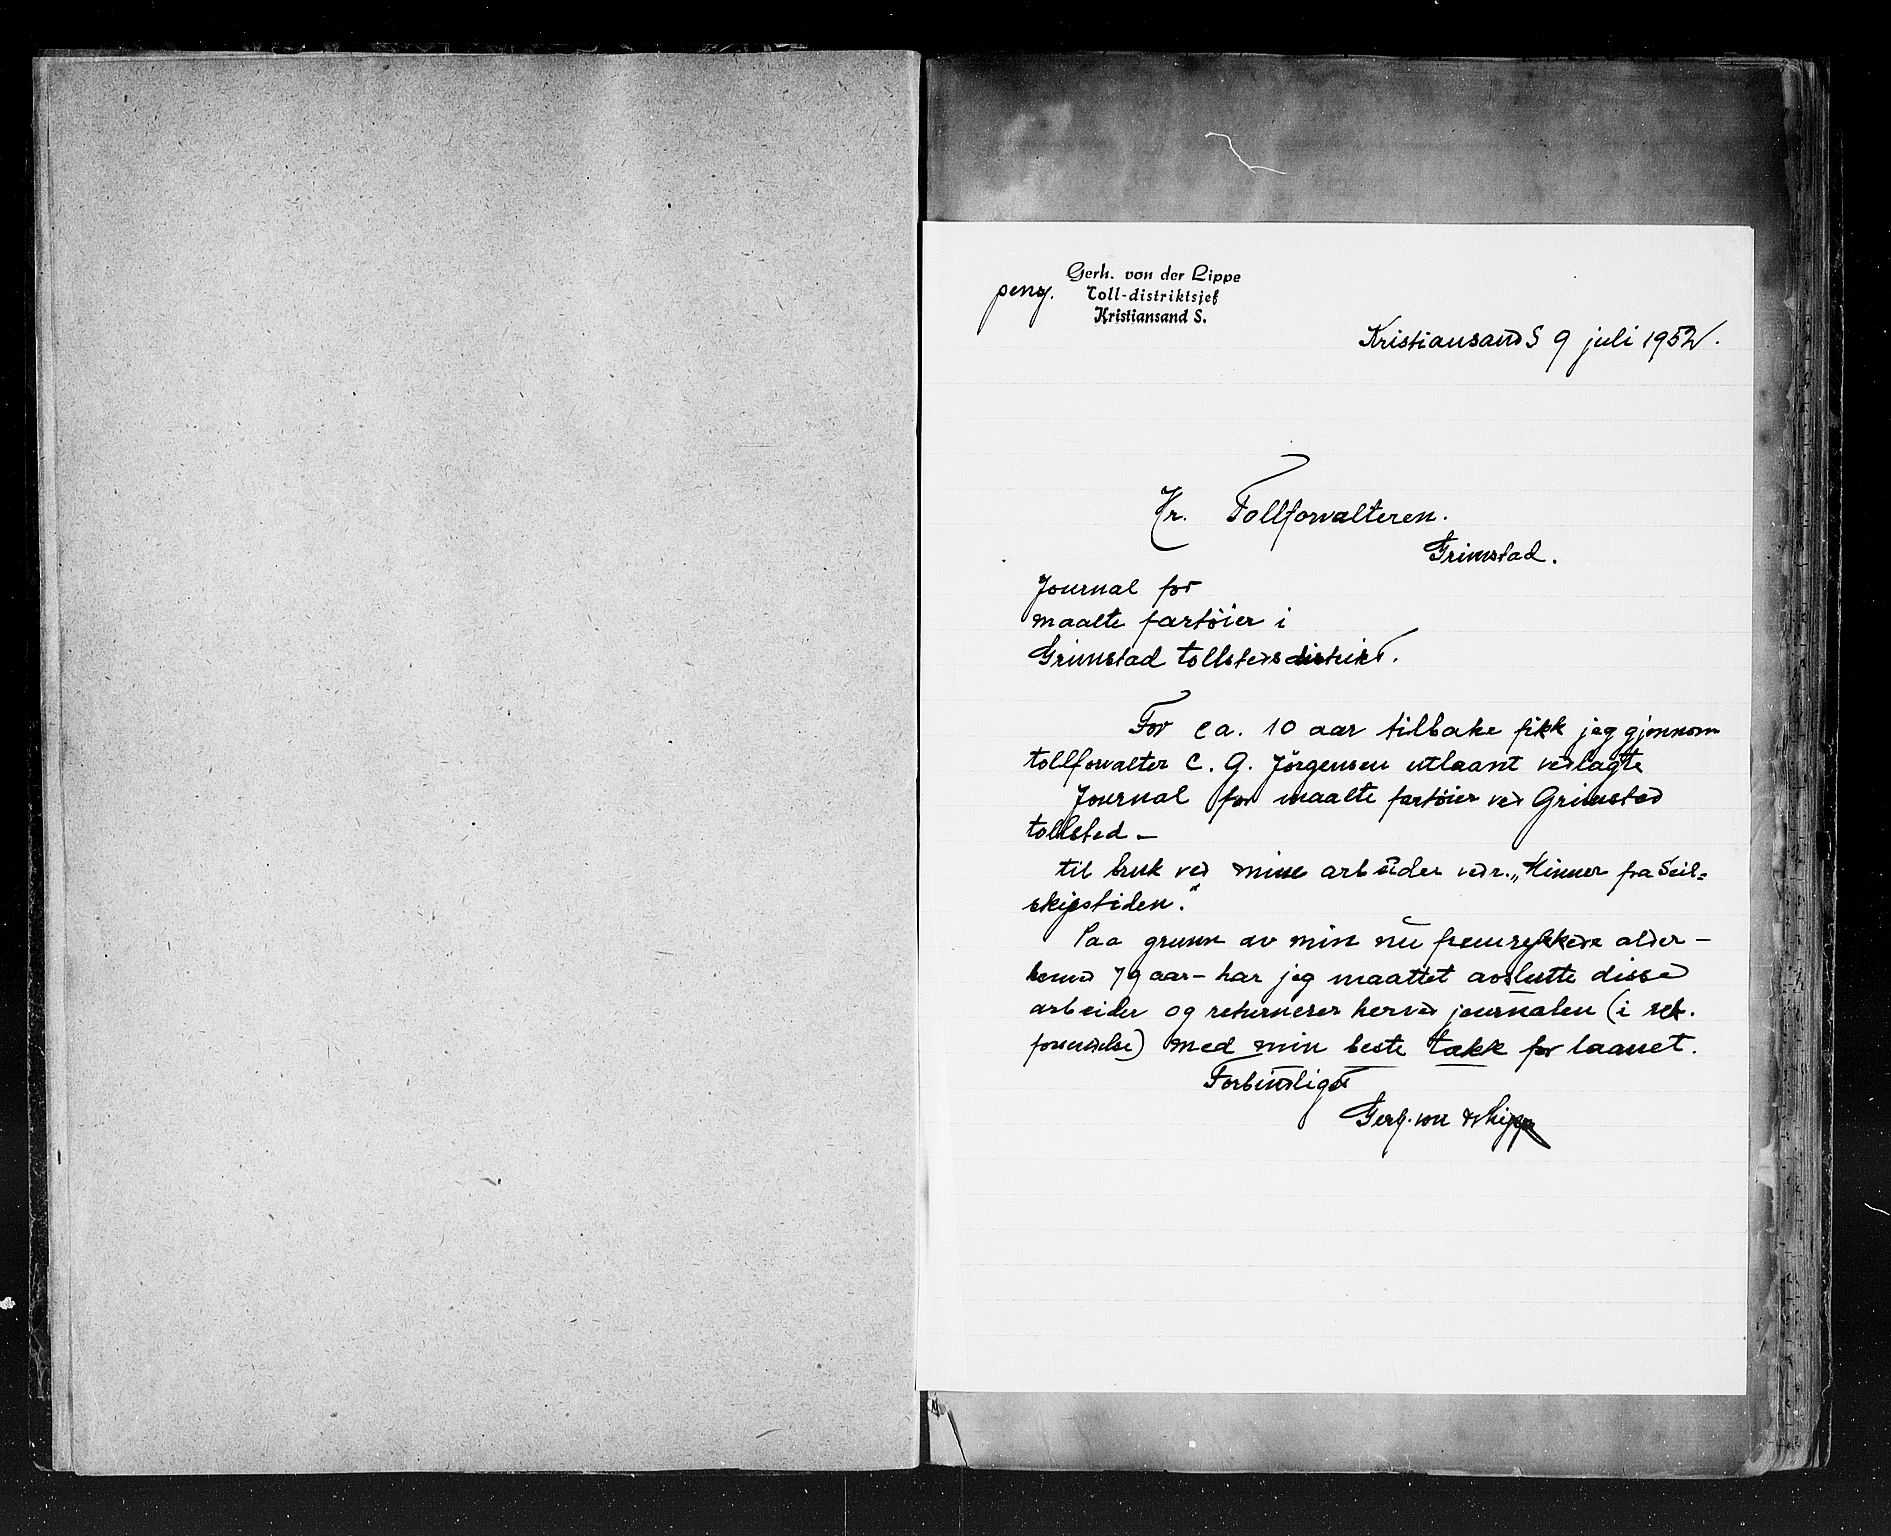 Gerh. von der Lippe
pensj. Toll-distriktsjef
Kristiansand S.
Kristiansand S 9 juli 1952.
Hr. Tollforvalteren.
Grimstad.
Journal for
maalte fartöier i
Grimstad tollstedsdistrikt.
For ca. 10 aar tilbake fikk jeg gjennom
tollforvalter C. G. Jörgensen utlaant vedlagte
Journal for maalte fartöier ved Grimstad
tollsted –
til bruk ved mine arbeider vedr. „Minner fra Seil=
skipstiden."
Paa grunn av min nu fremrykkede alder –
henved 79 aar – har jeg maattet avslutte disse
arbeider og returnerer herved journalen (i rek.
forsendelse) med min beste takk for laanet.
Forbindligst
Gerh. von d Lippe